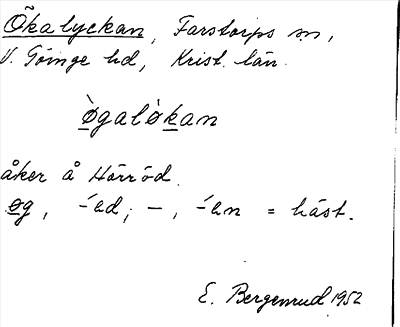 Ökalyckan, Farstorps sn,
V. Göinge hd, Krist. län.
ø̀galø̀kan
åker å Hörröd.
øg, -́ed; –, -́en = häst.
E. Bergenrud 1952